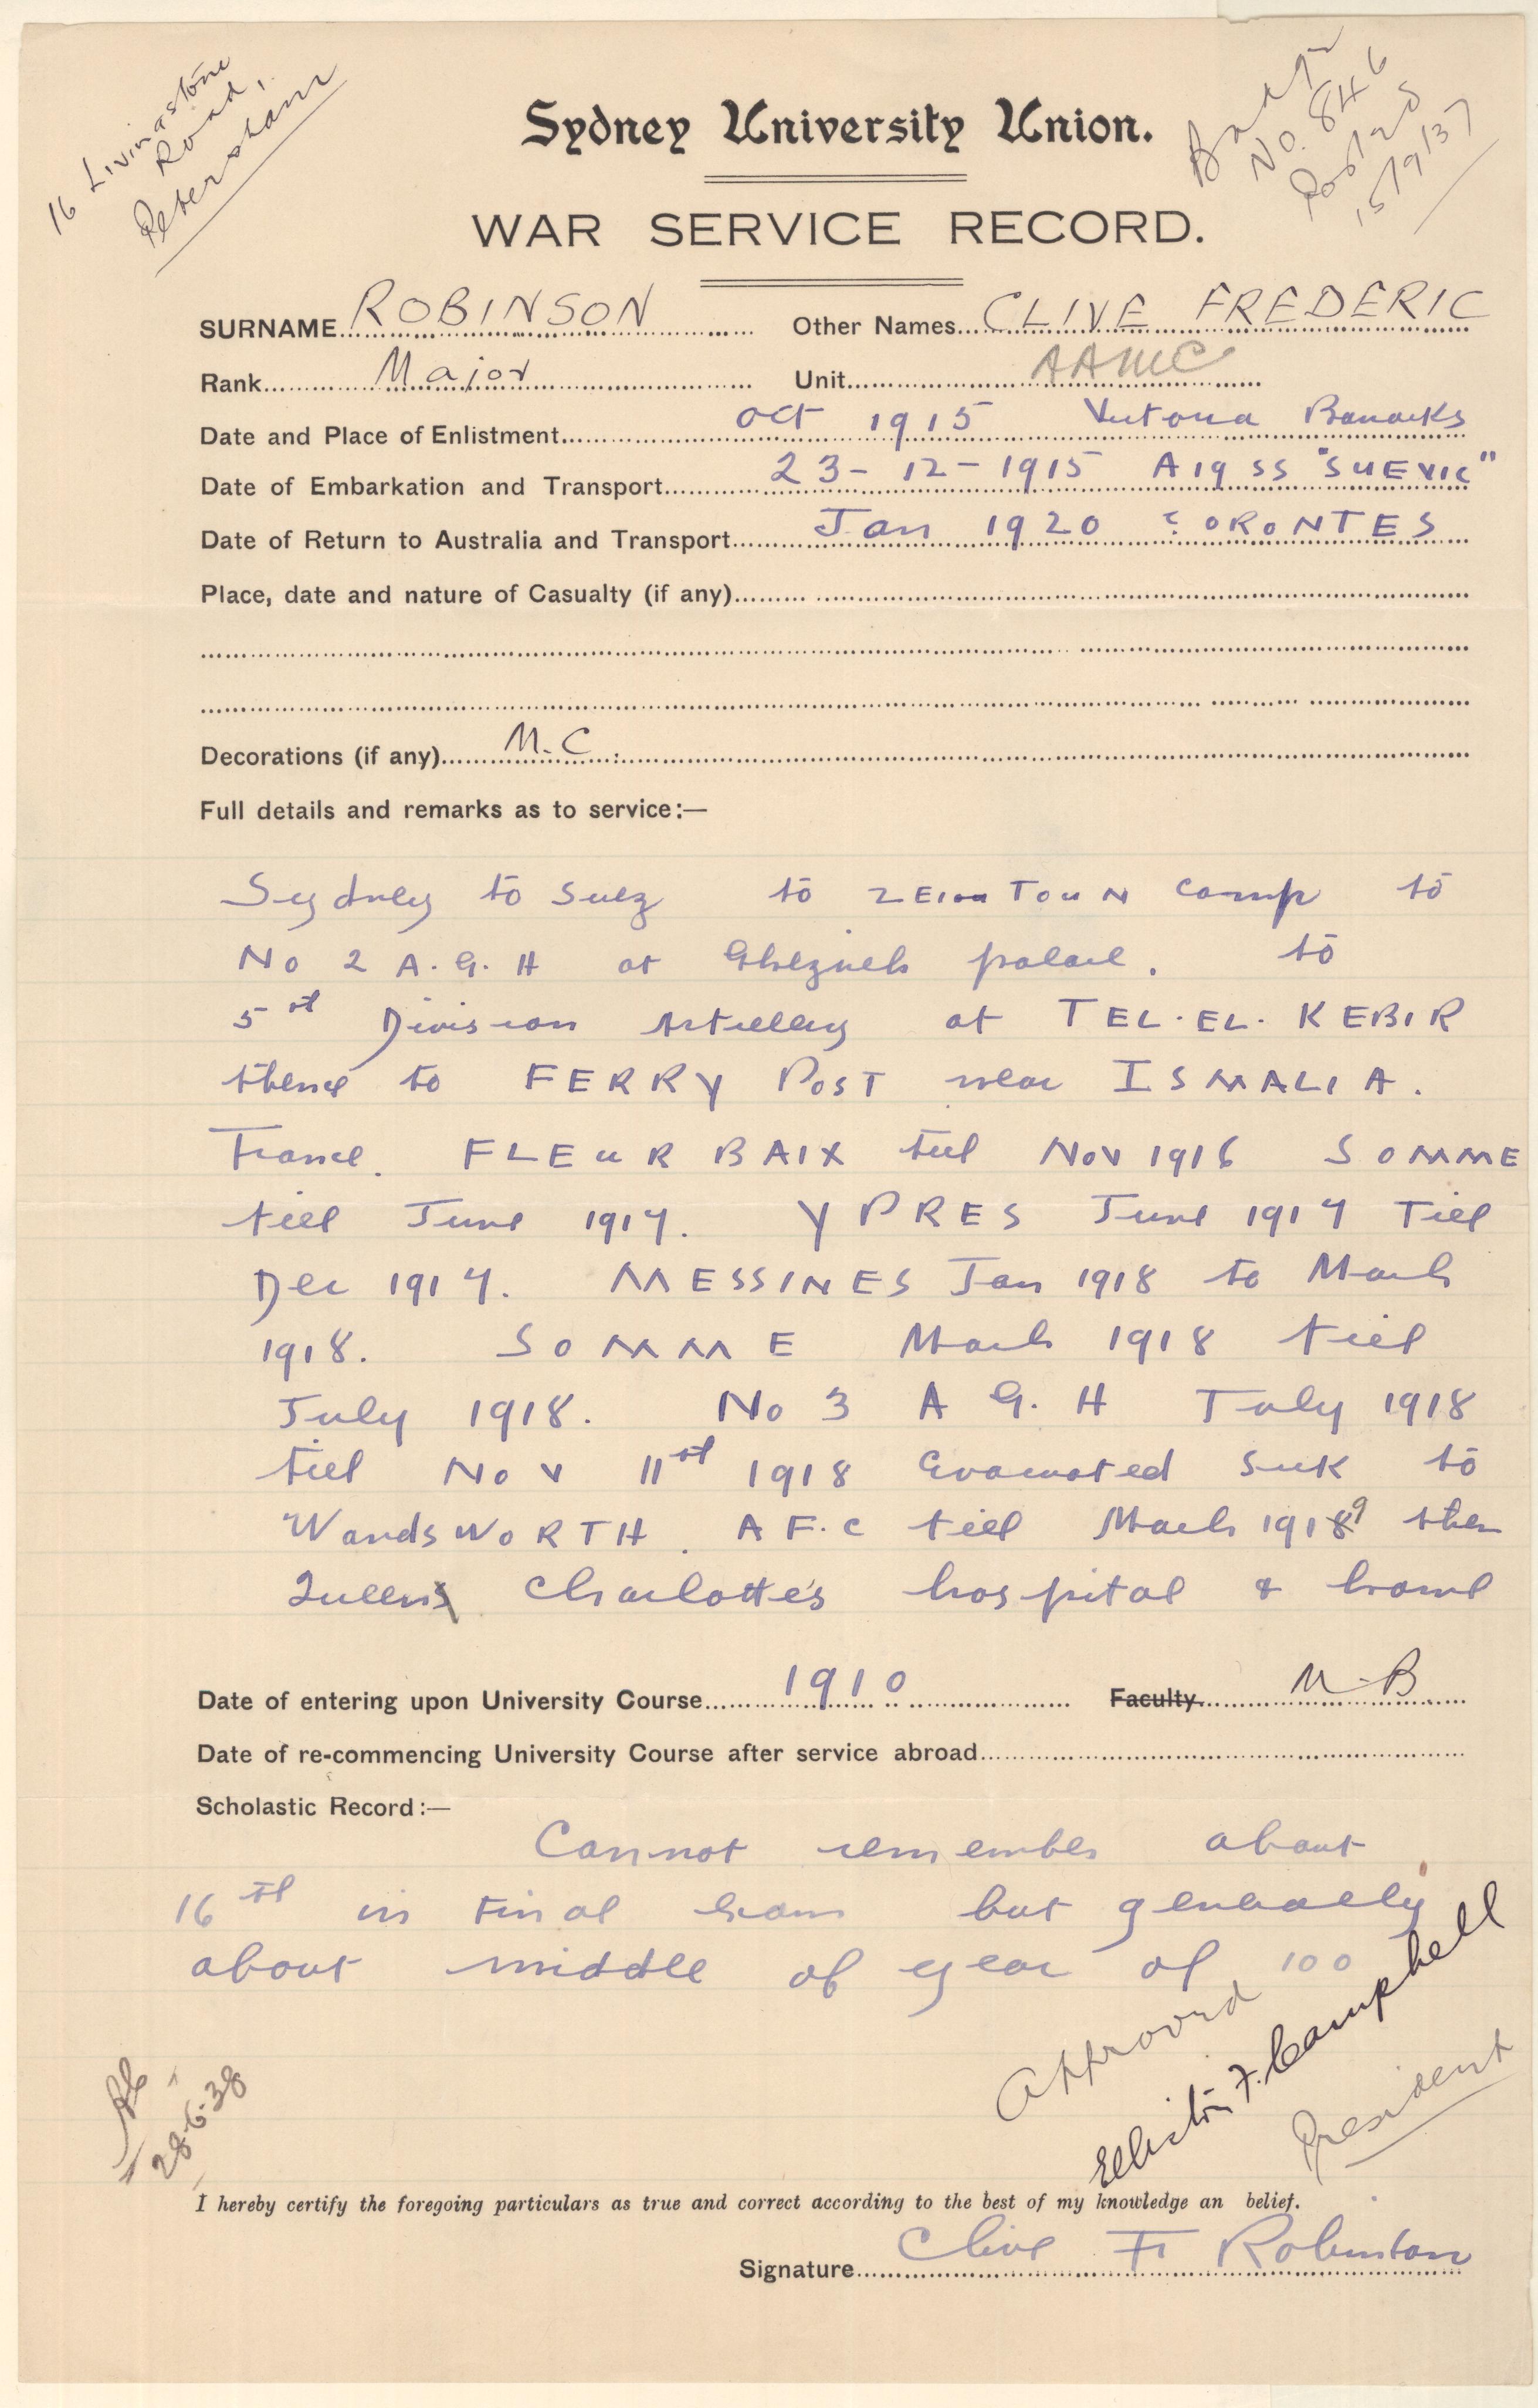 16 Livingstone
Road,
Petersham
Badge
No. 846
Posted
15/9/37
Sydney University Union.
WAR SERVICE RECORD.
SURNAME ROBINSON Other Names CLIVE FREDERIC
Rank Major Unit AAMC
Date and Place of Enlistment Oct 1915 Victoria Barracks
Date of Embarkation and Transport 23-12-1915 A 19 SS "SUEVIC"
Date of Return to Australia and Transport Jan 1920 ? ORONTES
Place, date and nature of Casualty (if any)
Decorations (if any) M.C.
Full details and remarks as to service:—
Sydney to Suez to ZEITOUN Camp to
No 2 A.G.H at Ghezireh palace. to
5 Division Artillery at TEL.EL.KEBIR
thence to FERRY POST near ISMALIA.
France. FLEUR BAIX till Nov 1916 SOMME
till June 1917. YPRES June 1917 Till
Dec 1917. MESSINES Jan 1918 to March
1918. SOMME March 1918 till
July 1918. No 3 A G. H July 1918
till Nov 11st 1918 Evacuated sick to
WandsWORTH. A F.C till March 1919 then
Queen Charlotte's hospital & home
Date of entering upon University Course 1910 Faculty. M-B
Date of re-commencing University Course after service abroad
Scholastic Record:—
Cannot remember about
16th in Final Exam but generally
about middle of year of 100
Approved
Elliston F. Campbell
President
28-6-38
I hereby certify the foregoing particulars as true and correct according to the best of my knowledge an belief.
Signature Clive F Robinson